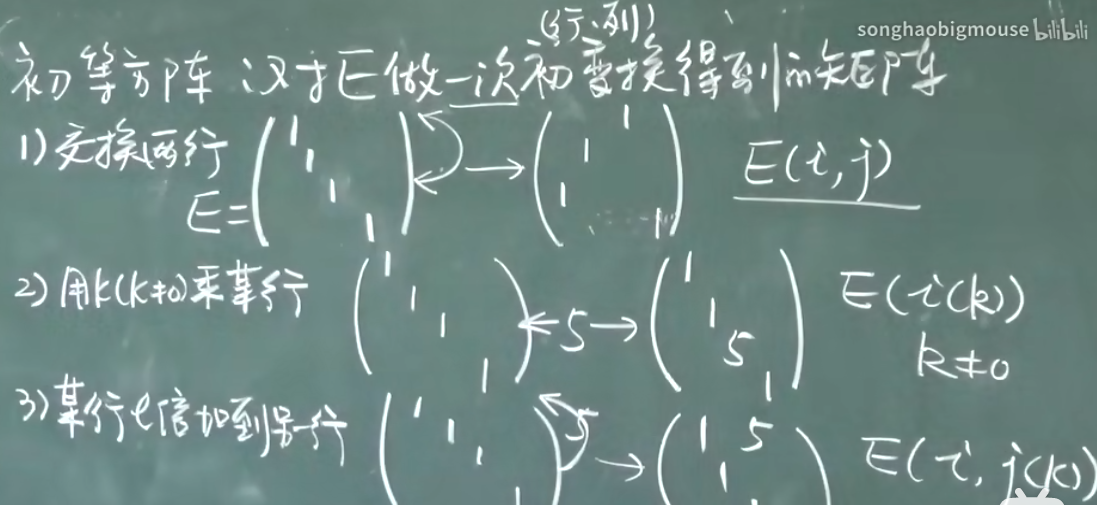 songhaobigmouse bilibili
(行.列)
初等方阵:对E做一次初变换得到的矩阵
1)交换两行 E=(1 1 1 1) → (1 1 1 1) E(i,j)
2)用k(k≠0)乘某行 (1 1 1 1) ←5→ (1 1 5 1) E(i(k))
k≠0
3)某行l倍加到另一行 (1 1 1 1 5 → (1 5 1 E(i,j(k))